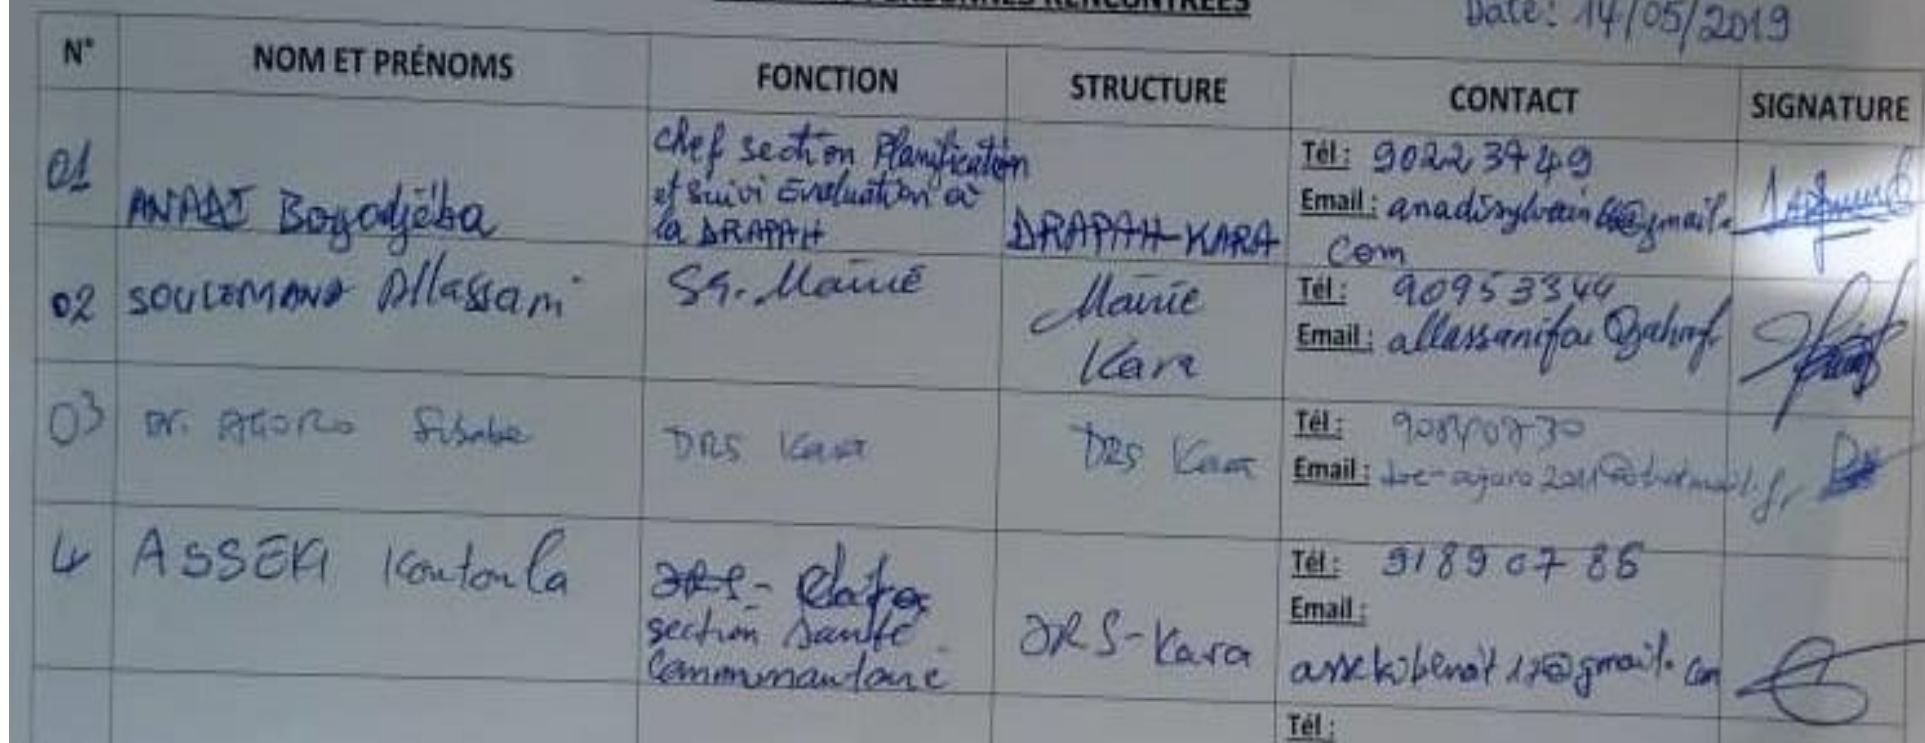 PERSONNES RENCONTRÉES
Date: 14/05/2019
N° NOM ET PRÉNOMS FONCTION STRUCTURE CONTACT SIGNATURE
01 ANADI Bogodjéba
chef section Planification
et suivi Evaluation à
la DRAPAH
DRAPAH-KARA
Tél : 90223749
Email : anadisylvain@gmail.
com
02 SOULEMANA Allassani
SG. Mairie
Mairie
Kara
Tél : 90953344
Email :
03 Dr. AGORO
DRS Kara
DRS Kara
Tél :
Email :
4 ASSEKI Koutoula
DRS-
section Santé
Communautaire
DRS-Kara
Tél : 91890786
Email :
assekibenoit12@gmail.com
Tél :